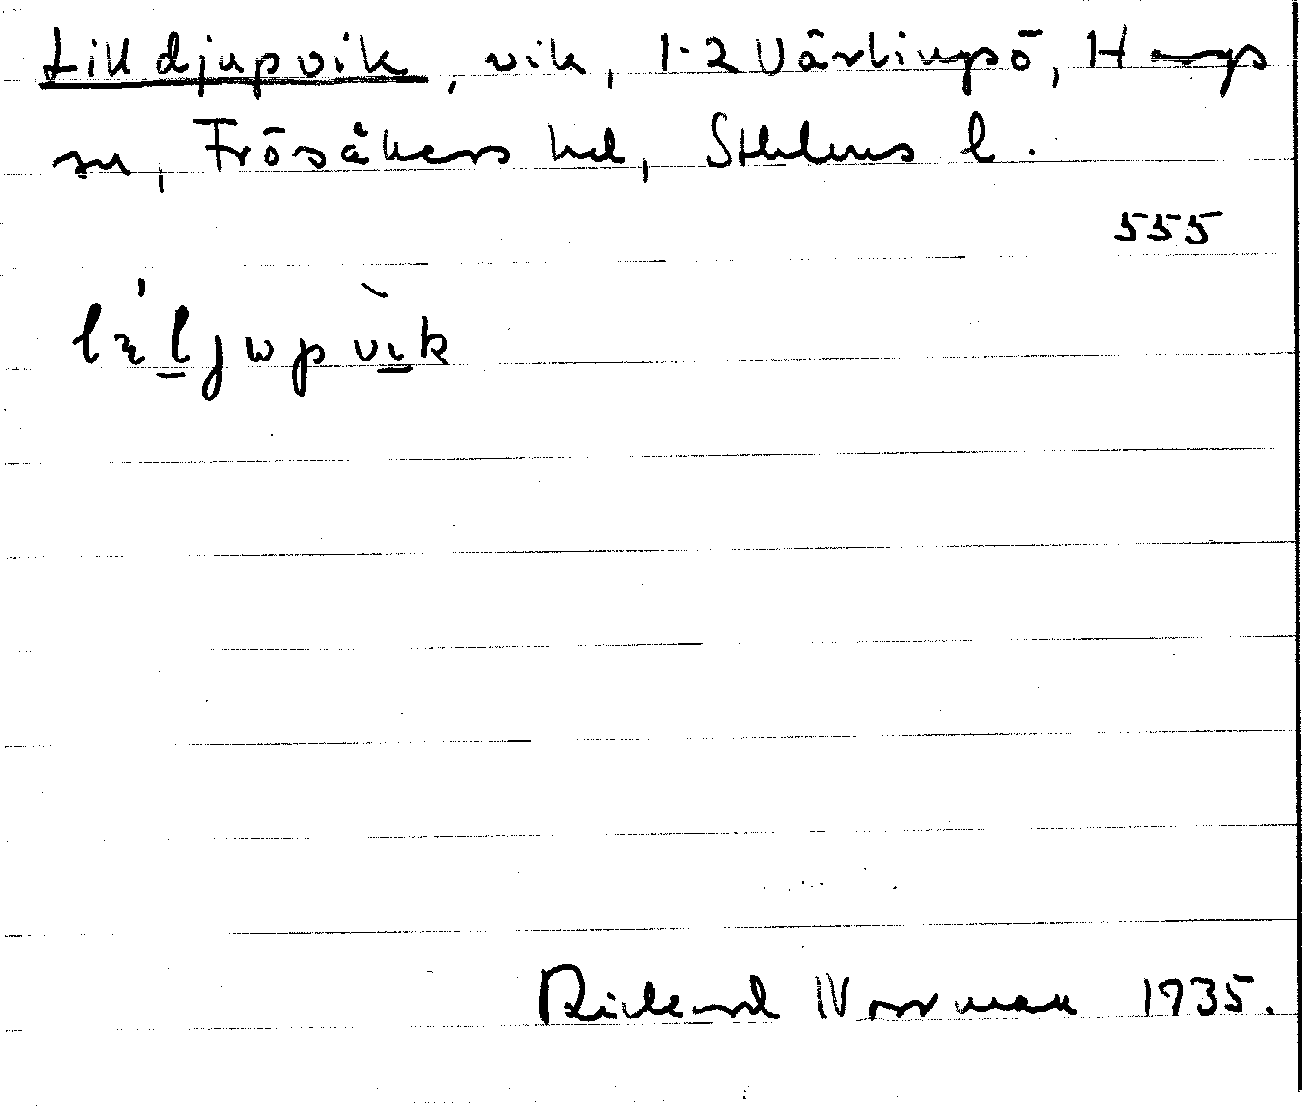 Lilldjupvik, vik, 1-2 Vårlingsö, Hargs
sn, Frösåkers hd, Sthlms l.
555
lıl̲jwpvı̲k
Rickard Norrman 1935.